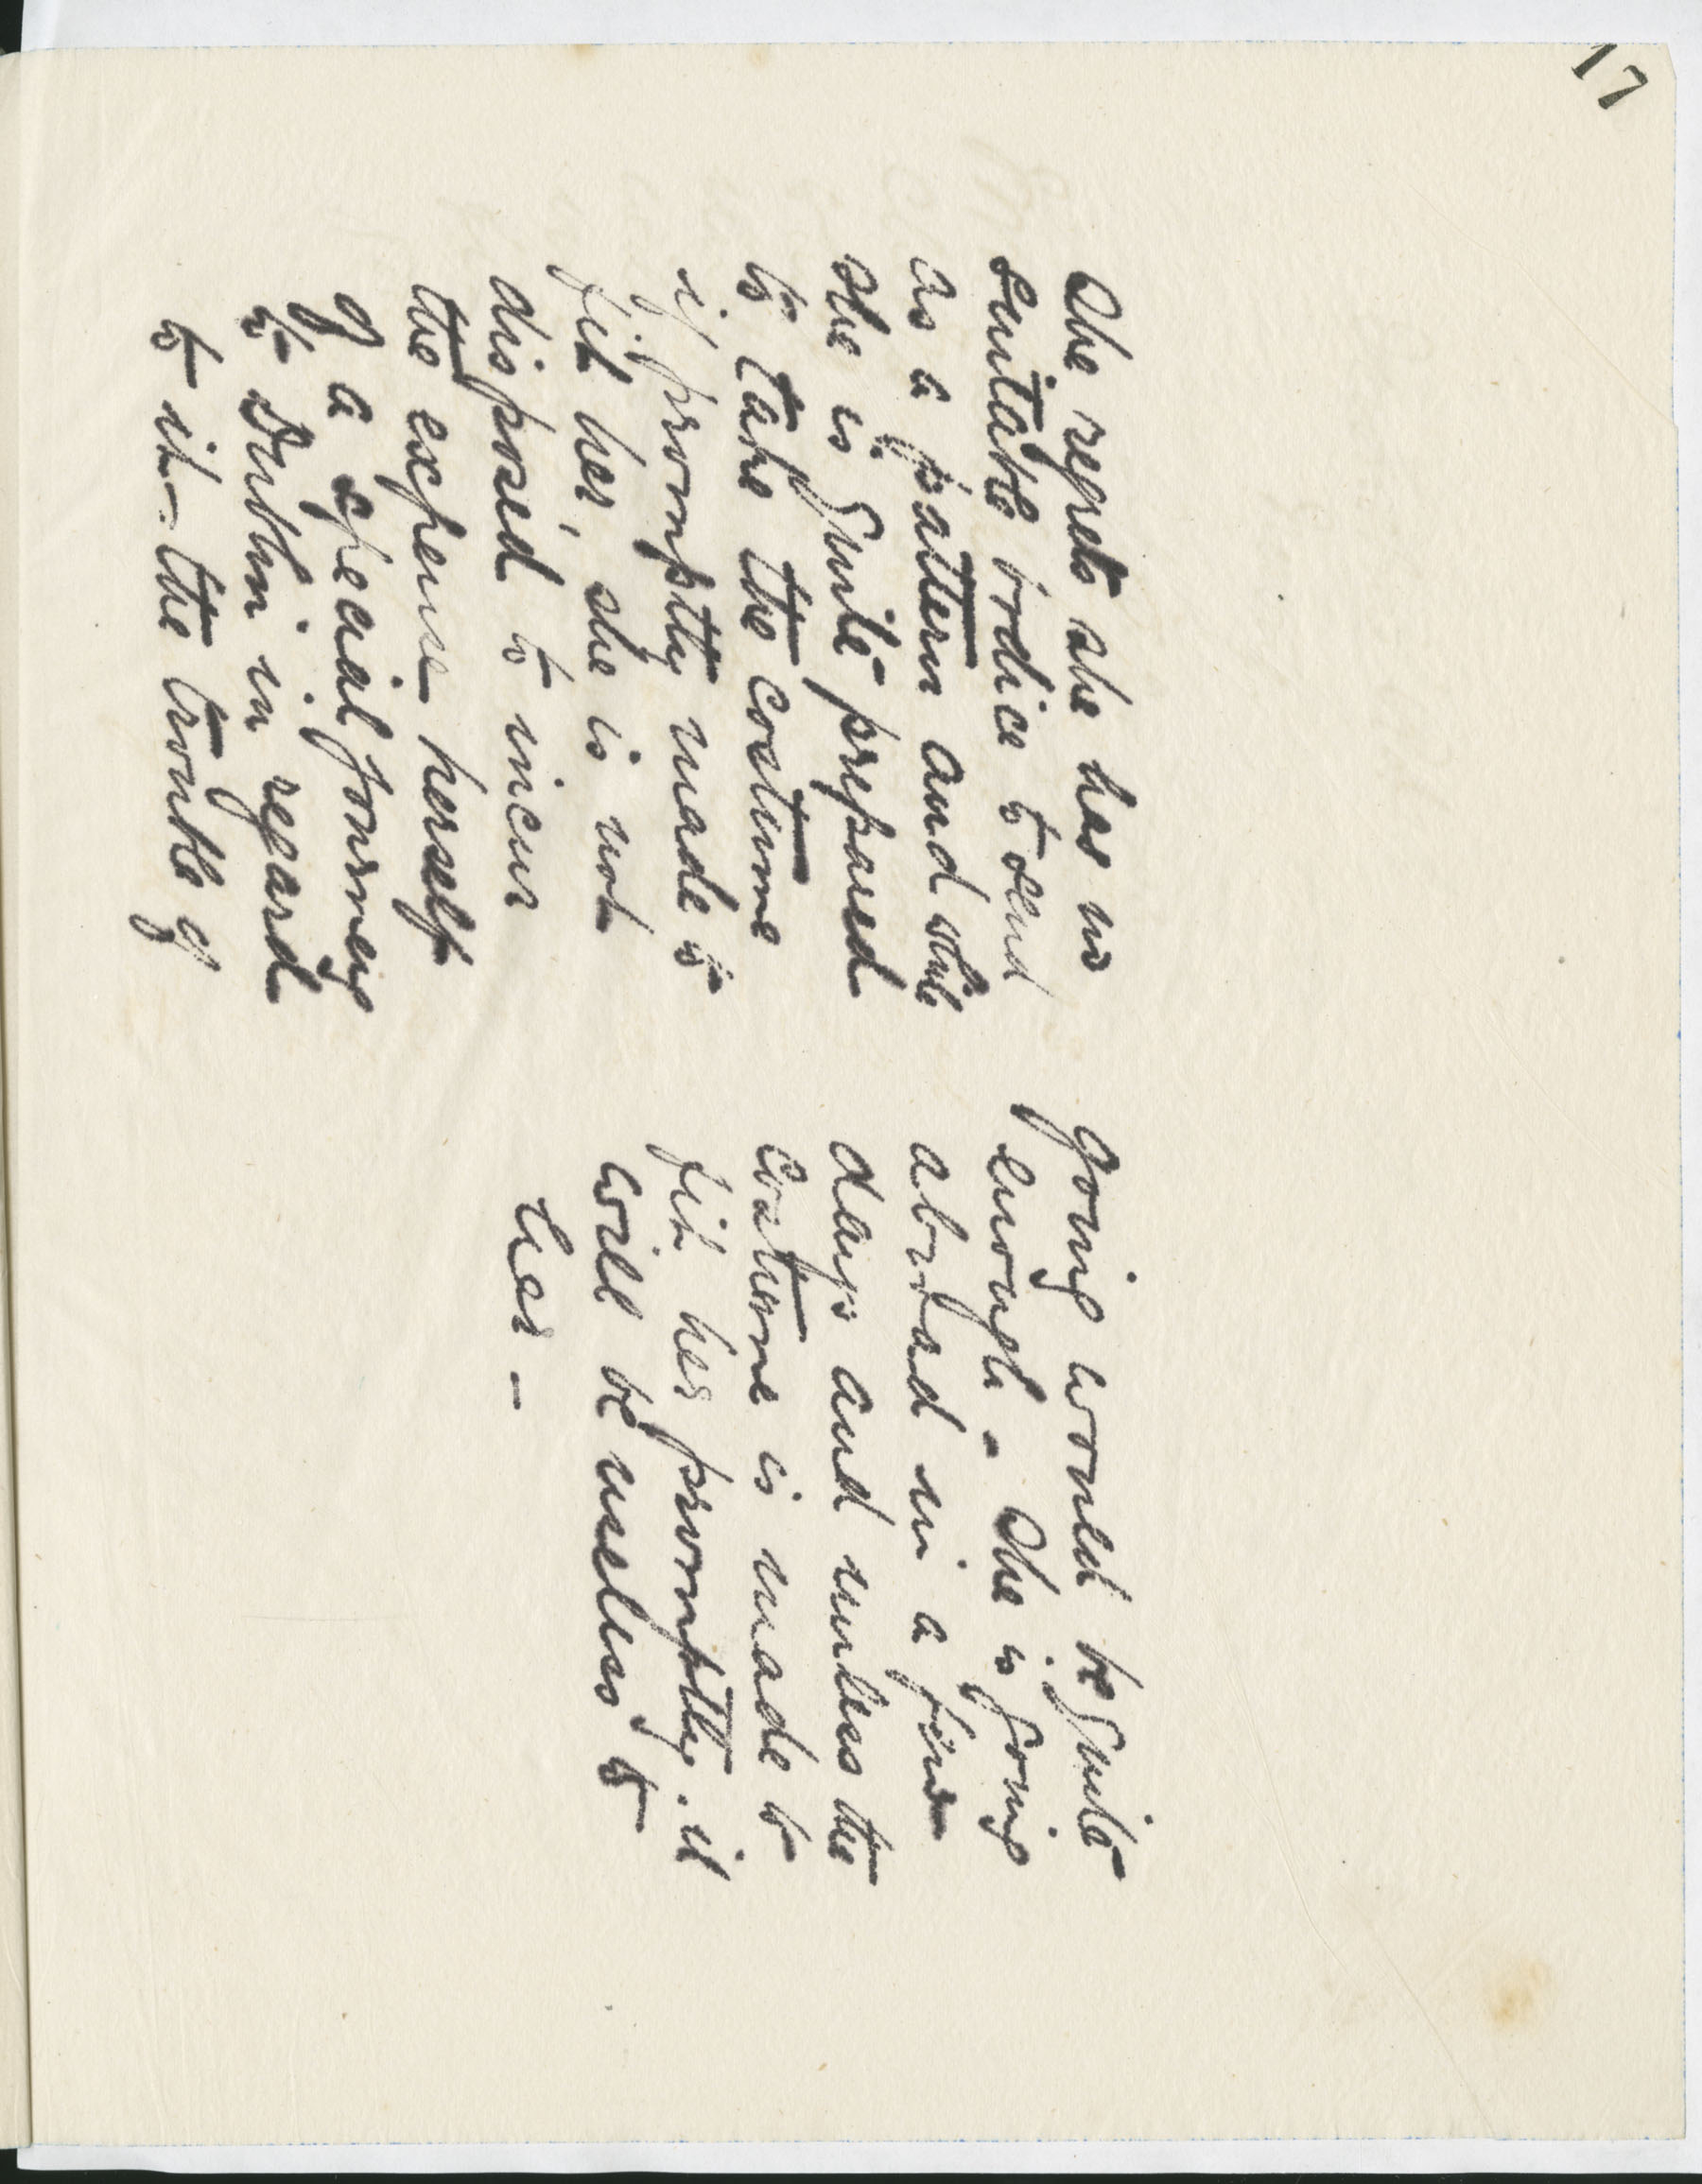 17
She regrets she has no
suitable bodice to send
as a pattern and while
she is quite prepared
to take the costume
if promptly made to
fit her, she is not
disposed to incur
the expense herself
of a special journey
to Dublin in regard
to it - the trouble of
going would be quite
enough - She is going
abroad in a few
days and unless the
costume is made to
fit her promptly, it
will be useless to
her -